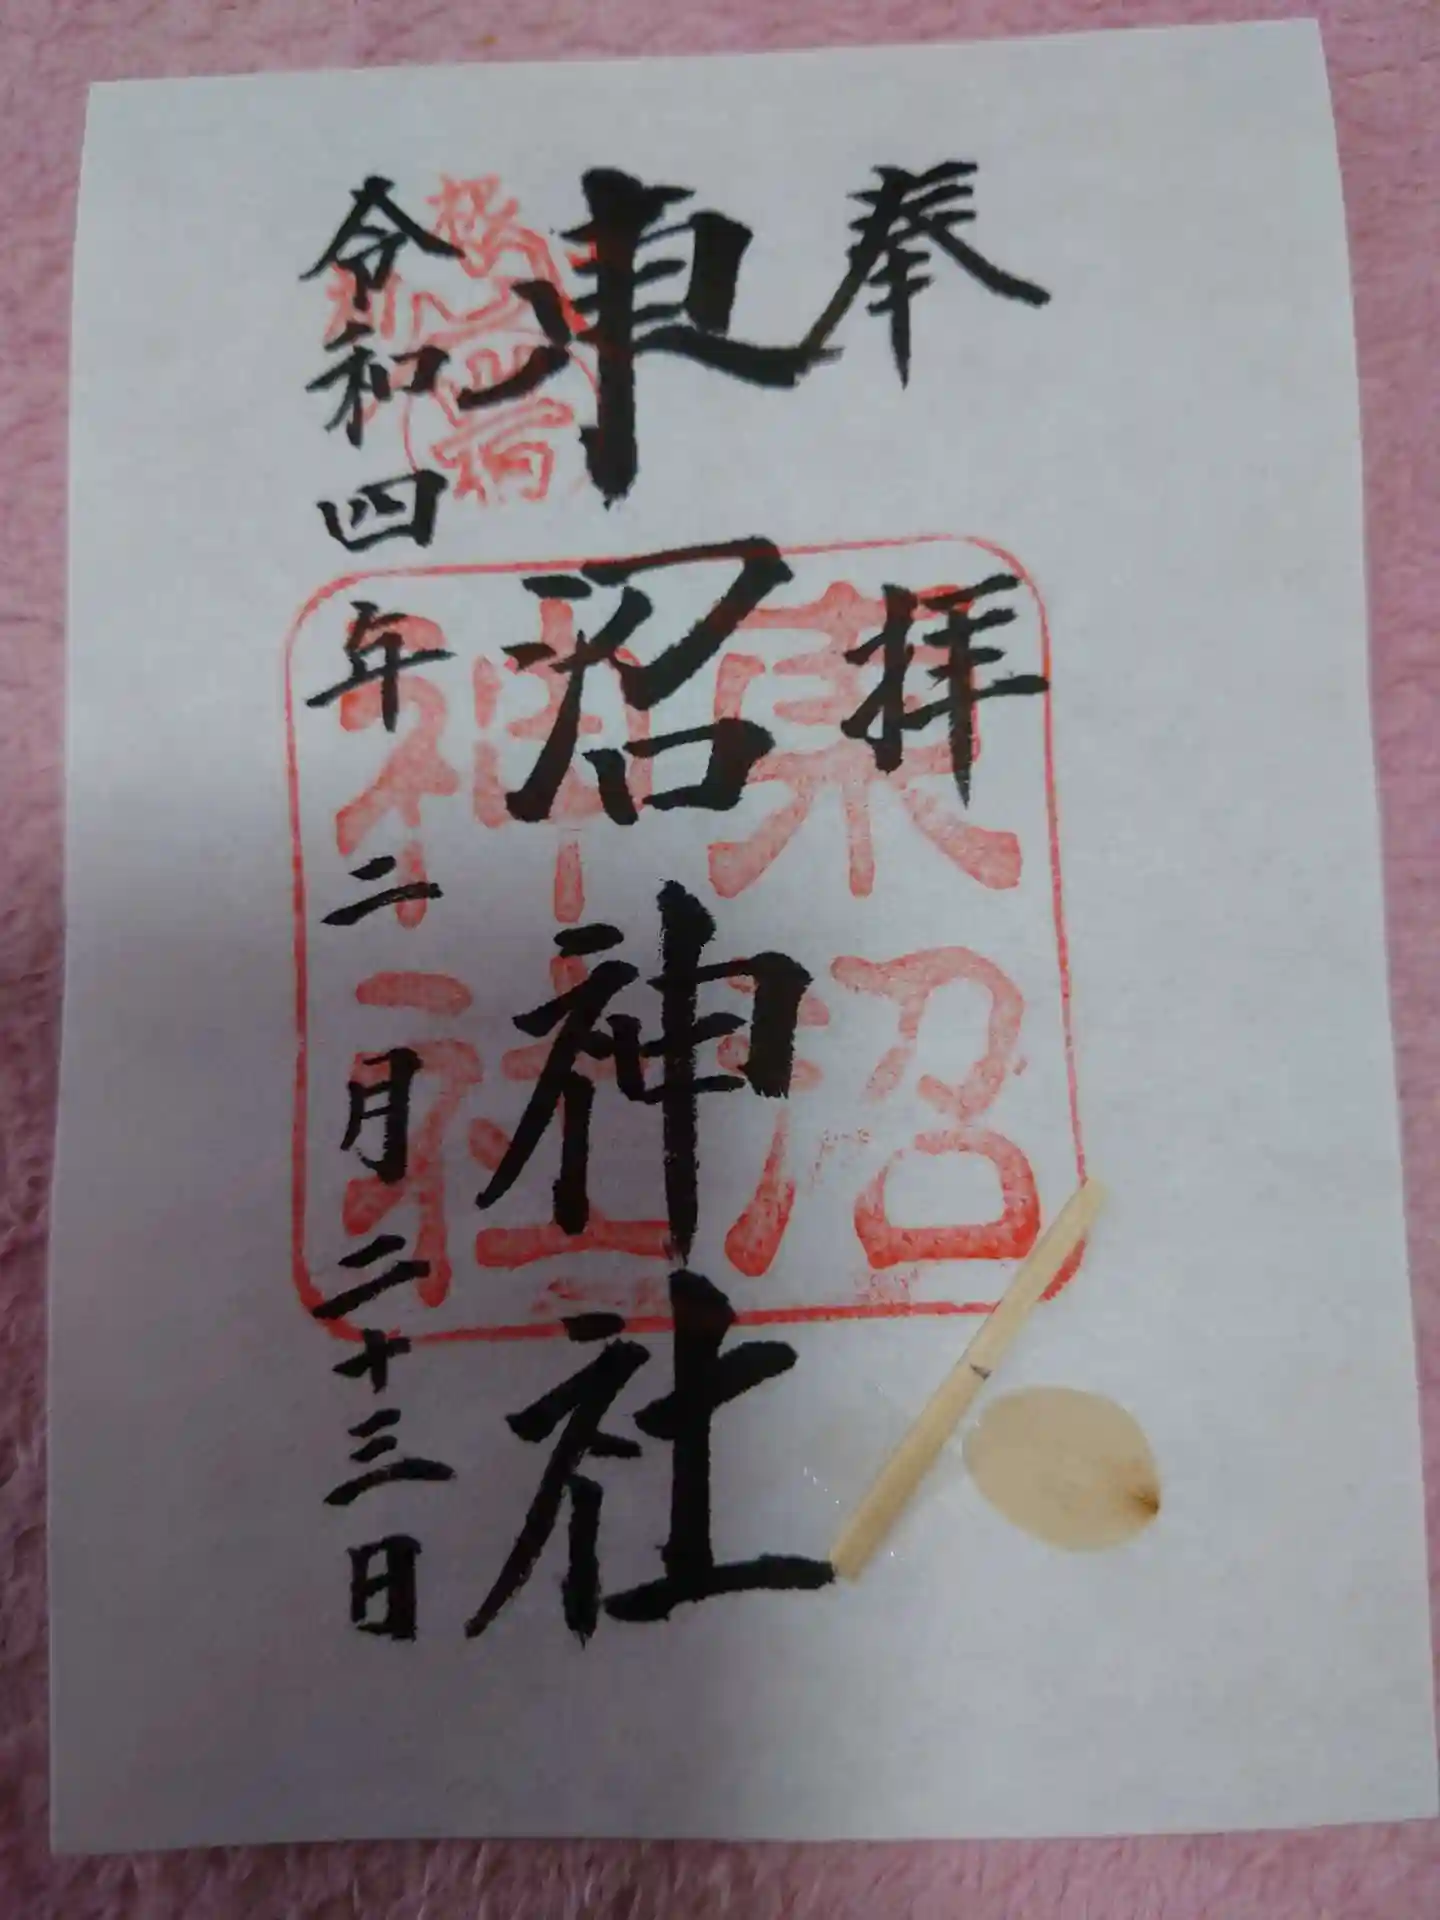 奉拝
東沼神社
令和四年二月二十三日
東沼
神社